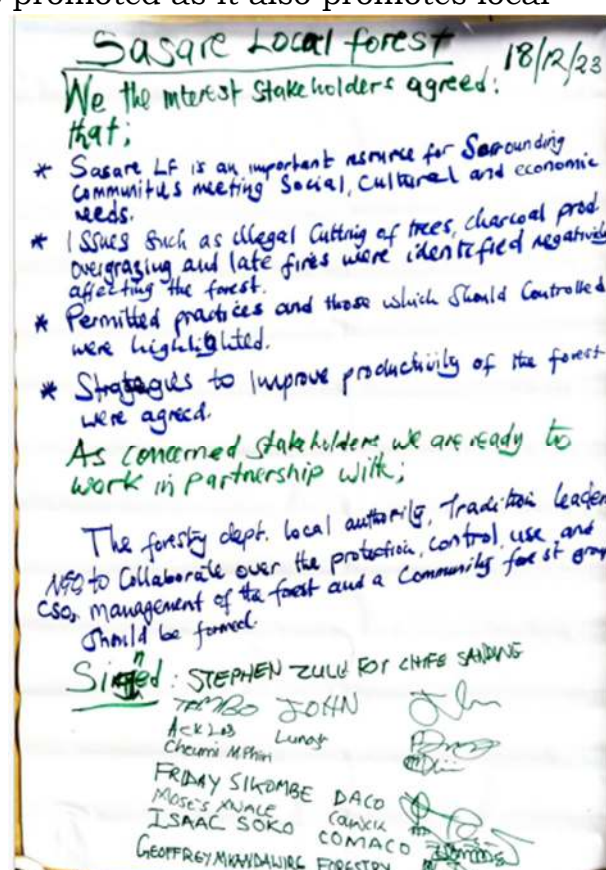 promoted as it also promotes local
Sasare Local forest
18/12/23
We the interest stakeholders agreed:
that;
* Sasare LF is an important resource for Sorrounding
communities meeting Social, Cultural and economic
needs.
* Issues such as illegal Cutting of trees, charcoal prod
overgrazing and late fires were identified negatively
affecting the forest.
* Permitted practices and those which should Controlled
were highlighted.
* Strategies to Improve productivity of the forest
were agreed.
As concerned stakeholders we are ready to
work in partnership with;
The forestry dept. local authority, Tradition leader
NGO to Collaborate over the protection, control, use, and
CSO, management of the forest and a Community forest group
should be formed.
Signed: STEPHEN ZULU FOR CHIFE SANDWE
TEMBO JOHN
Phiri
FRIDAY SIKOMBE DACO
ISAAC SOKO COMACO
GEOFFREY MKANDAWIRE FORESTRY